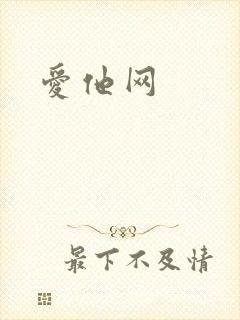 愛他网
最下不及情